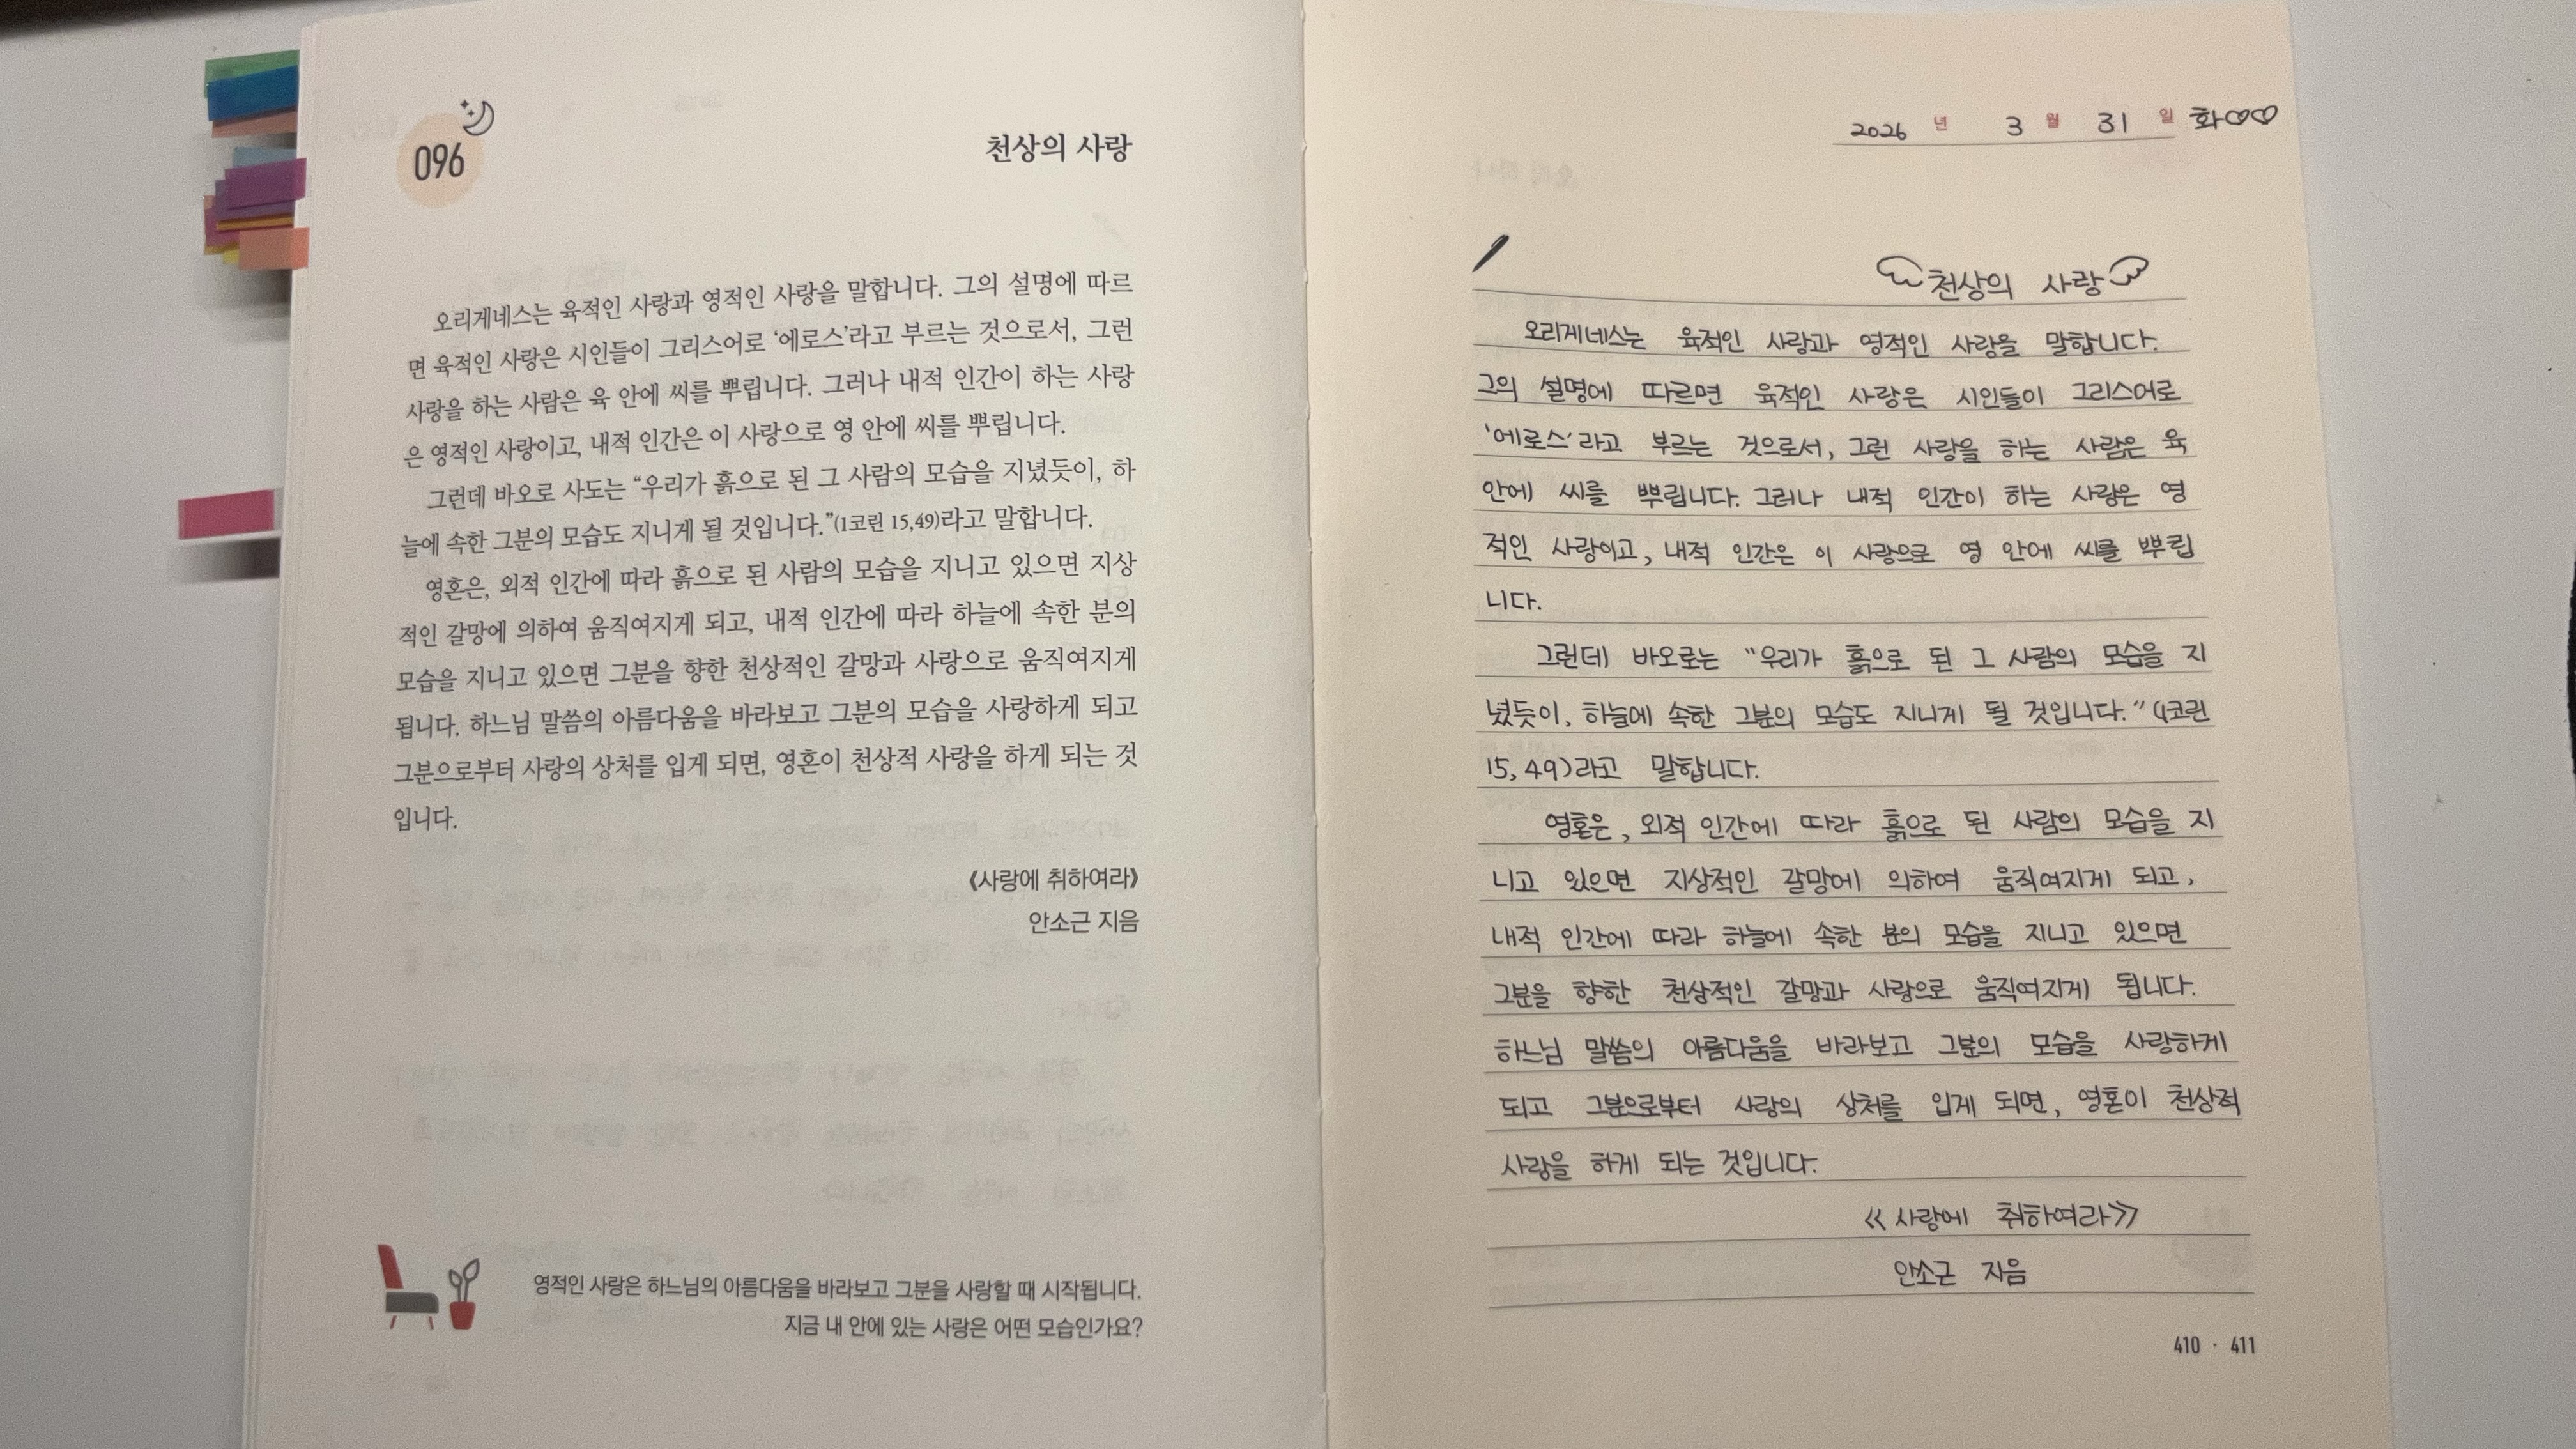 096
천상의 사랑
오리게네스는 육적인 사랑과 영적인 사랑을 말합니다. 그의 설명에 따르
면 육적인 사랑은 시인들이 그리스어로 ‘에로스’라고 부르는 것으로서, 그런
사랑을 하는 사람은 육 안에 씨를 뿌립니다. 그러나 내적 인간이 하는 사랑
은 영적인 사랑이고, 내적 인간은 이 사랑으로 영 안에 씨를 뿌립니다.
그런데 바오로 사도는 “우리가 흙으로 된 그 사람의 모습을 지녔듯이, 하
늘에 속한 그분의 모습도 지니게 될 것입니다.”(1코린 15,49)라고 말합니다.
영혼은, 외적 인간에 따라 흙으로 된 사람의 모습을 지니고 있으면 지상
적인 갈망에 의하여 움직여지게 되고, 내적 인간에 따라 하늘에 속한 분의
모습을 지니고 있으면 그분을 향한 천상적인 갈망과 사랑으로 움직여지게
됩니다. 하느님 말씀의 아름다움을 바라보고 그분의 모습을 사랑하게 되고
그분으로부터 사랑의 상처를 입게 되면, 영혼이 천상적 사랑을 하게 되는 것
입니다.
《사랑에 취하여라》
안소근 지음
영적인 사랑은 하느님의 아름다움을 바라보고 그분을 사랑할 때 시작됩니다.
지금 내 안에 있는 사랑은 어떤 모습인가요?
2026 년 3 월 31 일 화♡♡
천상의 사랑
오리게네스는 육적인 사랑과 영적인 사랑을 말합니다.
그의 설명에 따르면 육적인 사랑은 시인들이 그리스어로
‘에로스’라고 부르는 것으로서, 그런 사랑을 하는 사람은 육
안에 씨를 뿌립니다. 그러나 내적 인간이 하는 사랑은 영
적인 사랑이고, 내적 인간은 이 사랑으로 영 안에 씨를 뿌립
니다.
그런데 바오로는 “우리가 흙으로 된 그 사람의 모습을 지
녔듯이, 하늘에 속한 그분의 모습도 지니게 될 것입니다.” (1코린
15, 49)라고 말합니다.
영혼은, 외적 인간에 따라 흙으로 된 사람의 모습을 지
니고 있으면 지상적인 갈망에 의하여 움직여지게 되고,
내적 인간에 따라 하늘에 속한 분의 모습을 지니고 있으면
그분을 향한 천상적인 갈망과 사랑으로 움직여지게 됩니다.
하느님 말씀의 아름다움을 바라보고 그분의 모습을 사랑하게
되고 그분으로부터 사랑의 상처를 입게 되면, 영혼이 천상적
사랑을 하게 되는 것입니다.
《사랑에 취하여라》
안소근 지음
410 · 411